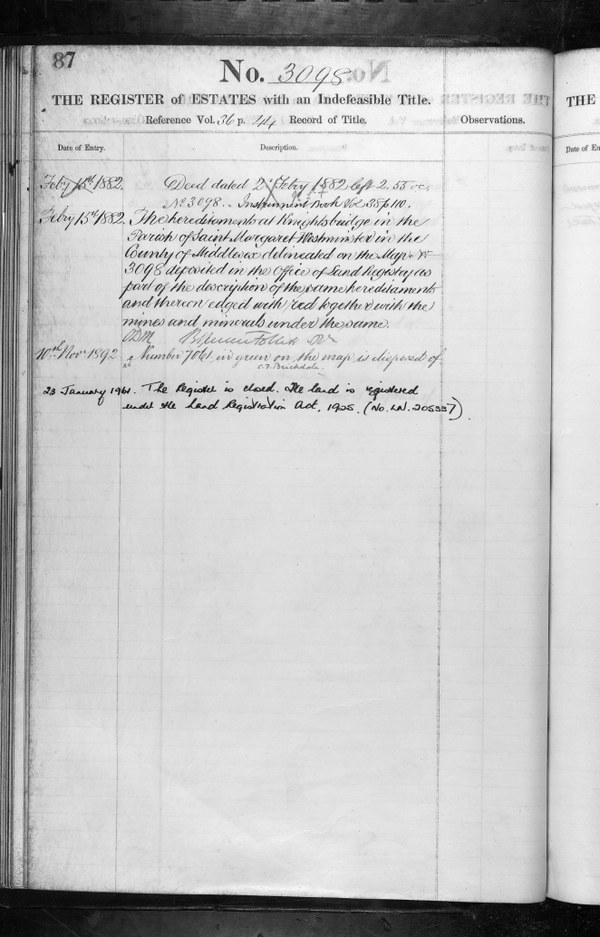 87
No. 3098
THE REGISTER of ESTATES with an Indefeasible Title.
Reference Vol. 36 p. 44 Record of Title.
Observations.
Date of Entry.
Description.
Feby 15th 1882.
Deed dated 2d Febry 1882 left 2.55 oc.
No 3098. Instrument Book Vol 35 p 110.
Febry 15th 1882.
The hereditaments at Knightsbridge in the
Parish of Saint Margaret Westminster in the
County of Middlesex delineated on the Map No
3098 deposited in the Office of Land Registry as
part of the description of the same hereditaments
and thereon edged with red together with the
mines and minerals under the same.
10th Novr 1892
Number 7061, in green on the map is disposed of.
C.F. Brickdale
23 January 1961. The Register is closed. The land is registered
under the Land Registration Act, 1925. (No. LN. 205357)
THE
Date of En